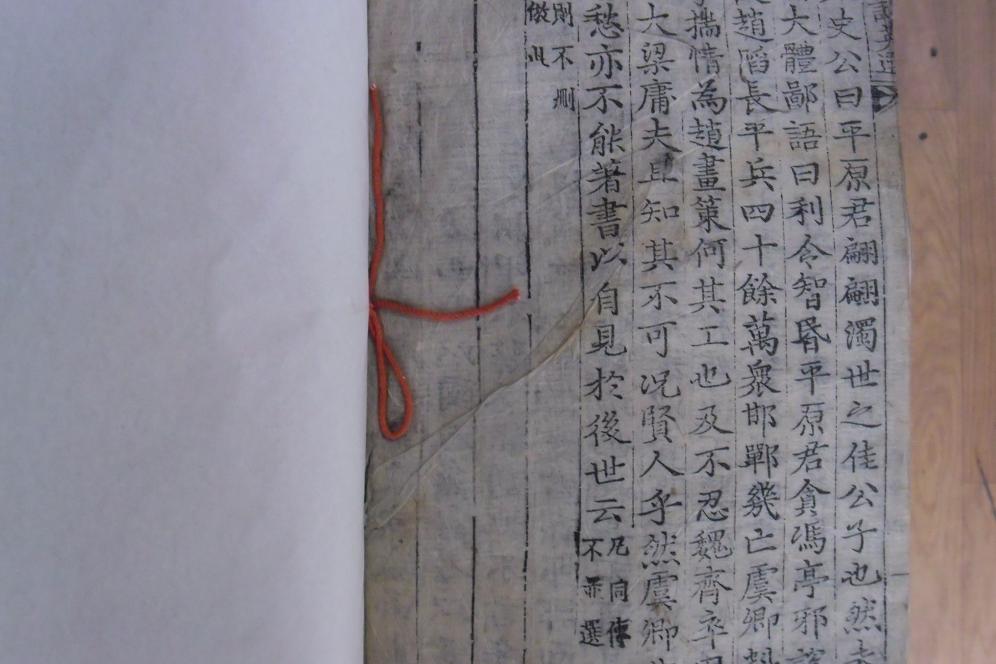 英選
史公曰平原君翩翩濁世之佳公子也然未
大體鄙語曰利令智昏平原君貪馮亭邪說
趙陷長平兵四十餘萬衆邯鄲幾亡虞卿料
揣情為趙畫策何其工也及不忍魏齊卒困
大梁庸夫且知其不可況賢人乎然虞卿
愁亦不能著書以自見於後世云
凡同傳
不並選
則不刪
倣此